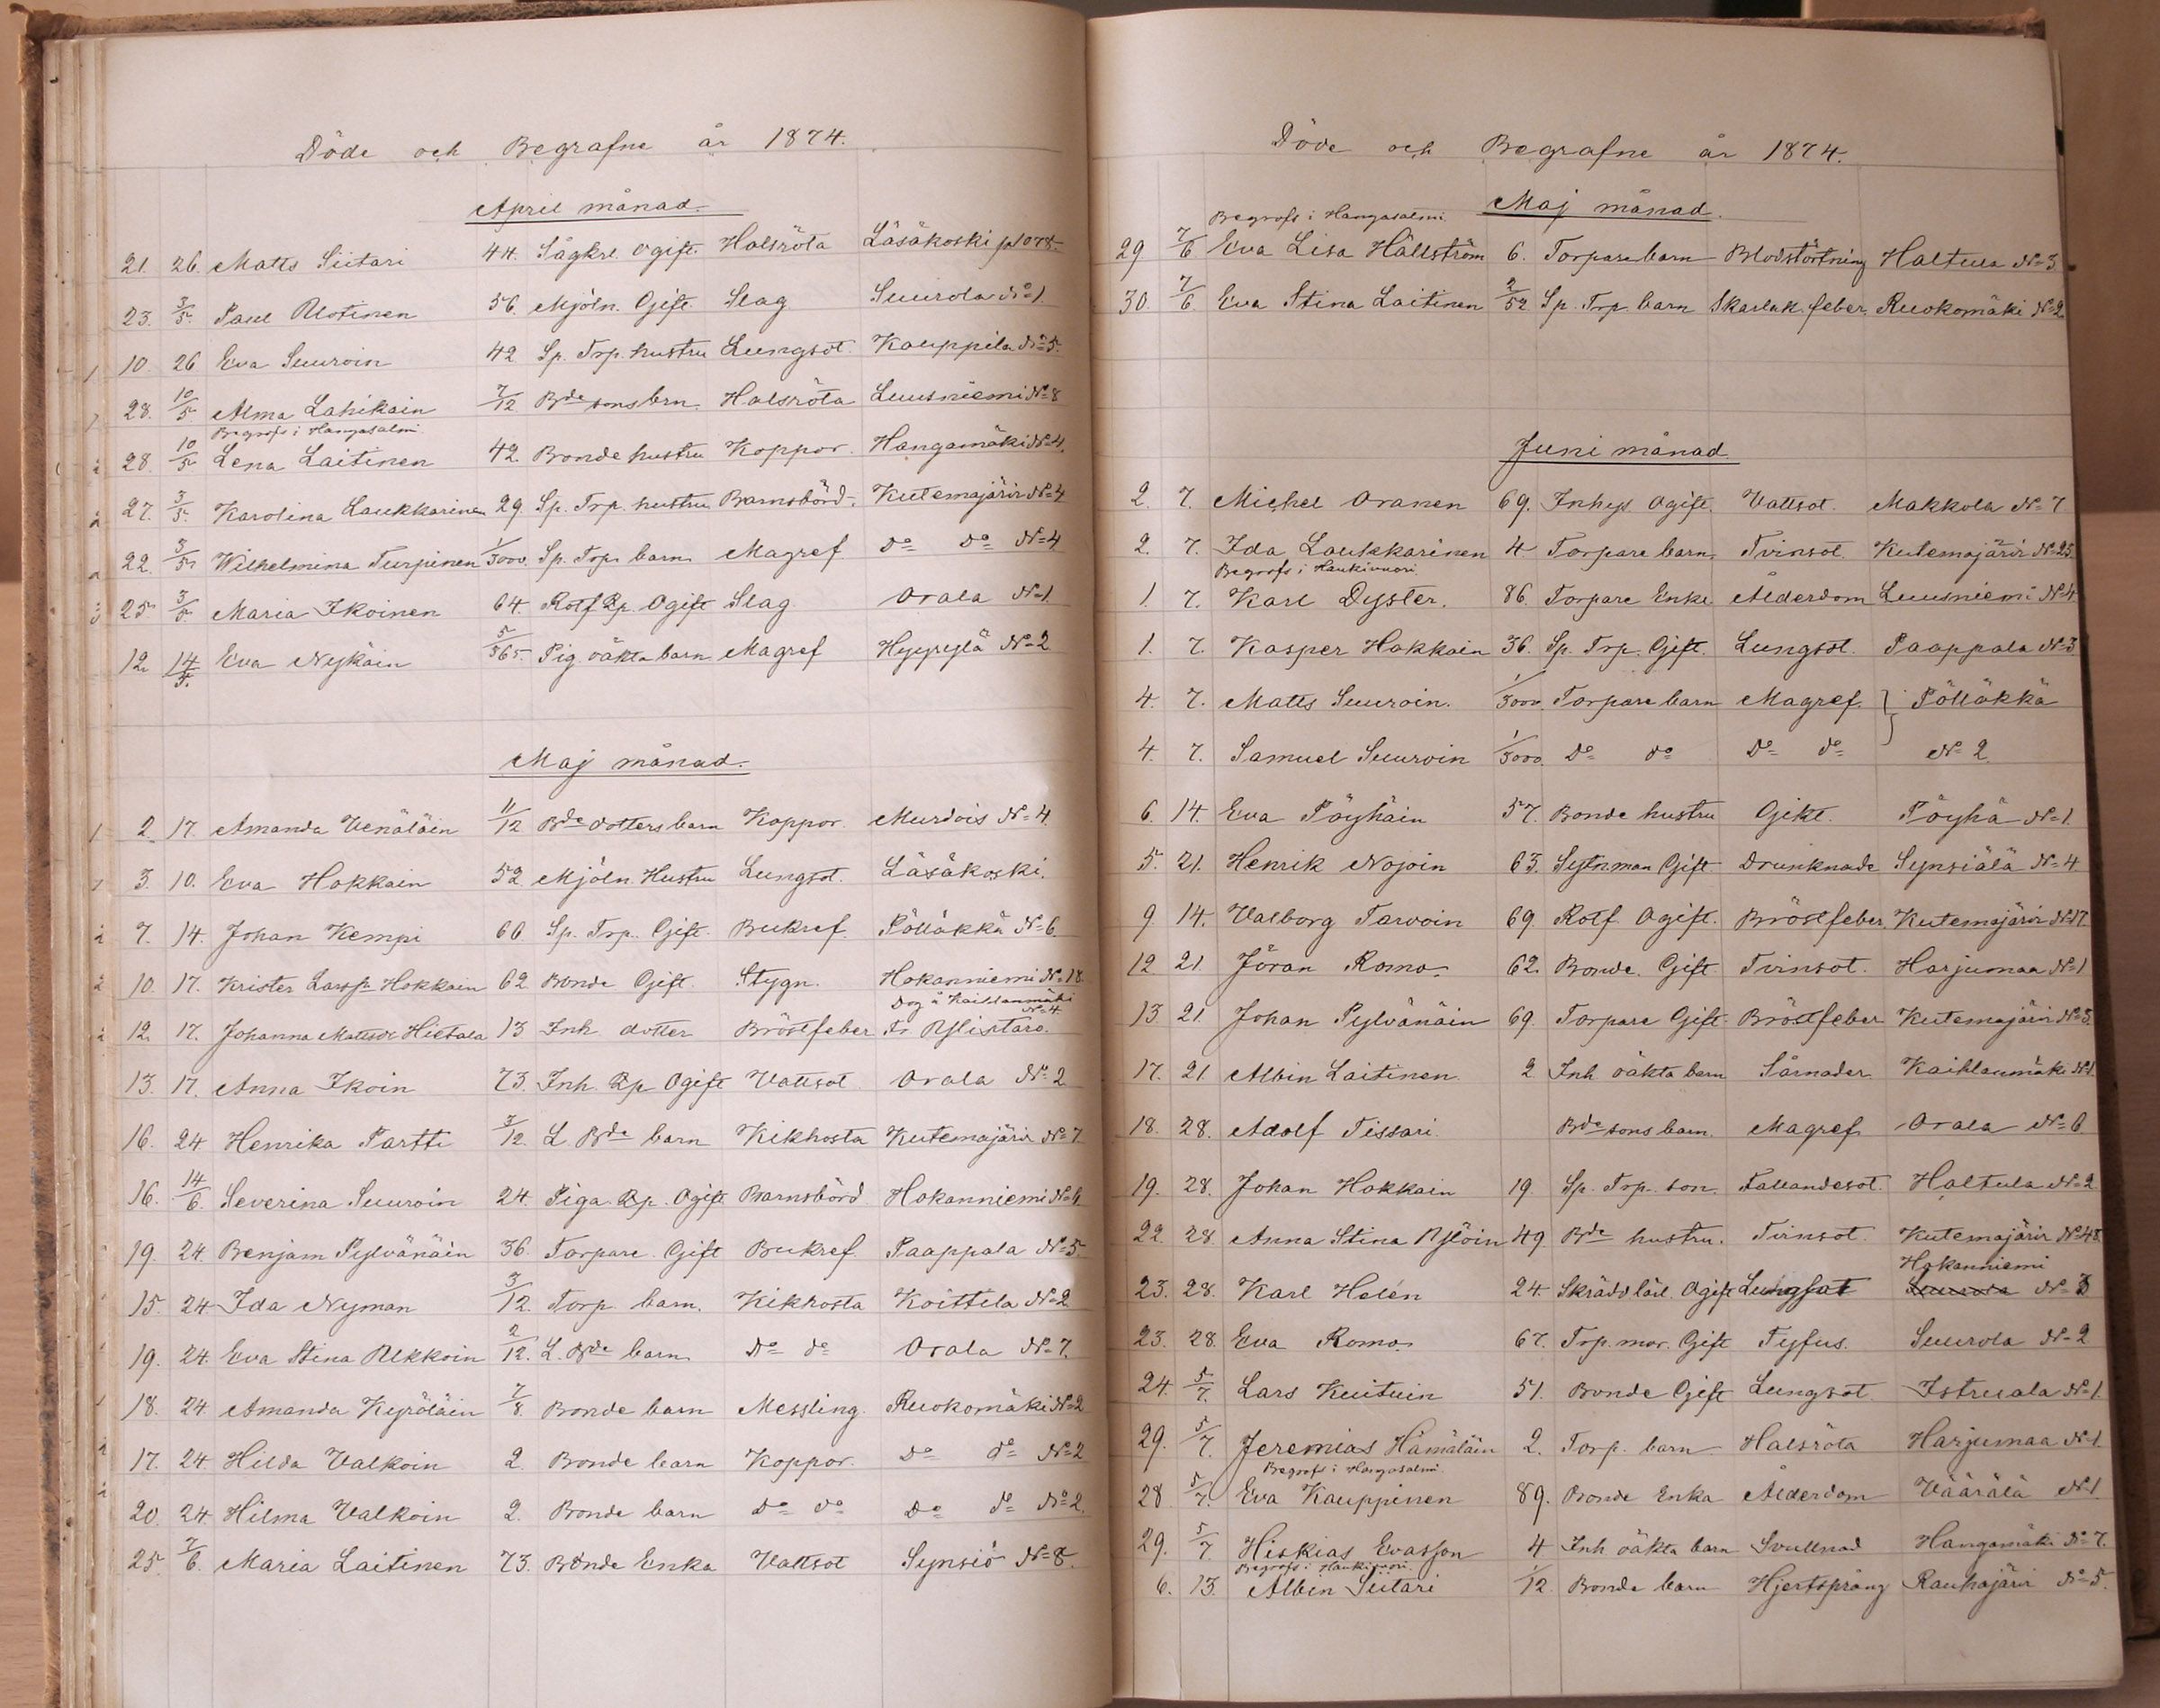 Döde och Begrafne år 1874.
April månad.
21. 26. Matts Siitari 44. Sågkrl. Ogift. Halsröta Läsäkoski
23. 3/5. Paul Ulotinen 56. Mjöln. Gift. Slag Suurola No 1.
10. 26 Eva Suuroin 42 Sp. Trp. hustru Lungsot. Kauppila No 5.
28. 10/5 Alma Lahikain 7/12 Bde sons brn. Halsröta Luusniemi No 8
Begrofs i Hangasalmi
28. 10/5 Lena Laitinen 42. Bonde hustru Koppor. Hangamäki No 4.
27. 3/5. Karolina Laukkarinen 29. Sp. Trp. hustru Barnsbörd. Kutemajärvi No 4
22. 3/5. Wilhelmina Turpinen 1/3000. Sp. Trp. barn Magref Do Do No 4
25 3/5 Maria Ikoinen 64. Rotf. Qp. Ogift Slag Orala No 1.
12. 14/5. Eva Nykäin 5/365. Pig. oäkta barn Magref Hyyrylä No 2
Maj månad.
2. 17. Amanda Venäläin 11/12 Bde dotters barn Koppor Murdois No 4.
3. 10. Eva Hokkain 52 Mjöln. Hustru Lungsot. Läsäkoski.
7. 14. Johan Kempi 60 Sp. Trp. Gift. Bukref. Pölläkkä No 6.
10. 17. Krister Larsp. Hokkain 62 Bonde Gift. Stygn. Hokanniemi No 18.
Dog å Kaihlanmäki No 4
12. 17. Johanna Mattsdr Hietala 13 Inh. dotter Bröstfeber Fr. Ylistaro.
13. 17. Anna Ikoin 73. Inh. Qp Ogift Vattsot Orala No 2
16. 24 Henrika Partti 3/12. L. Bde barn Kikhosta Kutemajärvi No 7.
16. 14/6. Severina Suuroin 24. Piga Qp. Ogift Barnsbörd Hokanniemi
19. 24. Benjam Pylvänäin 36. Torpare Gift Bukref. Paappala No 5.
15. 24 Ida Nyman 3/12. Torp. barn. Kikhosta Koittila No 2
19. 24. Eva Stina Ukkoin 2/12. L. Bde barn Do do Orala No 7.
18. 24. Amanda Kyröläin 7/8. Bonde barn Messling. Ruokomäki No 2
17. 24. Hilda Valkoin 2. Bonde barn Koppor. Do do No 2
20. 24 Hilma Valkoin 2. Bonde barn Do do Do do No 2.
25. 7/6. Maria Laitinen 73. Bonde Enka Vattsot Synsiö No 8.
Döde och Begrafne år 1874.
Maj månad.
Begrofs i Hangasalmi
29 7/6 Eva Lisa Hällström 6. Torpare barn Blodstörtning Haltula No 3
30. 7/6. Eva Stina Laitinen 2/52 Sp. Trp. barn Skarlak. feber. Ruokomäki No 2
Juni månad.
2. 7. Michel Oranen 69. Inhys. Ogift. Vattsot. Makkola No 7
2. 7. Ida Laukkarinen 4 Torpare barn. Tvinsot. Kutemajärvi No 25
Begrofs i Haukivuori.
1. 7. Karl Dyster. 86. Torpare Enkl. Ålderdom Luusniemi No 4
1. 7. Kasper Hakkain 36. Sp. Trp. Gift. Lungsot. Paappala No 3
4. 7. Matts Suuroin. 1/3000. Torpare barn Magref. } Pölläkkä
4. 7. Samuel Suuroin 1/3000. Do do Do do No 2.
6. 14. Eva Pöyhäin 57. Bonde hustru Gikt. Pöyhä No 1.
5. 21. Henrik Nojoin 63. Sytn.man Gift. Drunknade Synsiälä No 4.
9. 14. Valborg Tarvoin 69. Rotf. Ogift. Bröstfeber. Kutemajärvi No 17.
12 21. Jöran Romo. 62. Bonde. Gift. Tvinsot. Harjumaa No 1
13. 21. Johan Pylvänäin 69. Torpare Gift. Bröstfeber Kutemajärvi No 3.
17. 21. Albin Laitinen. 2 Inh. oäkta barn Sårnader. Kaihlanmäki No 1.
18. 28. Adolf Tissari. Bde sons barn. Magref Orala No 6
19. 28. Johan Hokkain 19 Sp. Trp. son. Fallandesot. Haltula No 2
22. 28. Anna Stina Ylöin 49. Bde hustru. Tvinsot. Kutemajärvi No 48.
Hokanniemi
23. 28. Karl Helén 24. Skrädd.lärl. Ogift Lungsot Suurola No 3
23. 28. Eva Romo. 67. Trp. mor. Gift Tyfus. Suurola No 2
24. 5/7. Lars Kuituin 51. Bonde Gift Lungsot Istruala No 1.
29. 5/7. Jeremias Hämäläin 2. Torp. barn Halsröta Harjumaa No 1.
Begrofs i Hangasalmi.
28 5/7. Eva Kauppinen 89. Bonde Enka Ålderdom Väärälä No 1
29. 5/7. Hiskias Evasson 4 Inh. oäkta barn Svullnad Hangamäki No 7.
Begrofs i Haukivuori.
6. 13. Albin Siitari 1/12 Bonde barn Hjertsprång Rauhajärvi No 5.